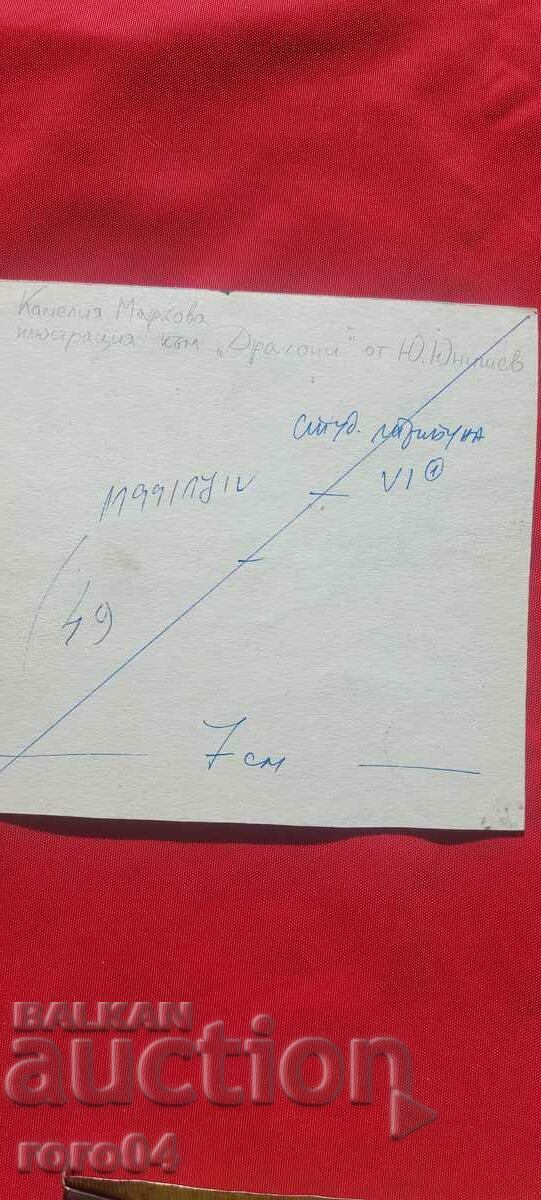 Камелия Маркова
илюстрация към „Дракони" от Ю. Юнишев
студ. трибуна
VI ①
49
7 см
BALKAN
auction
roro04